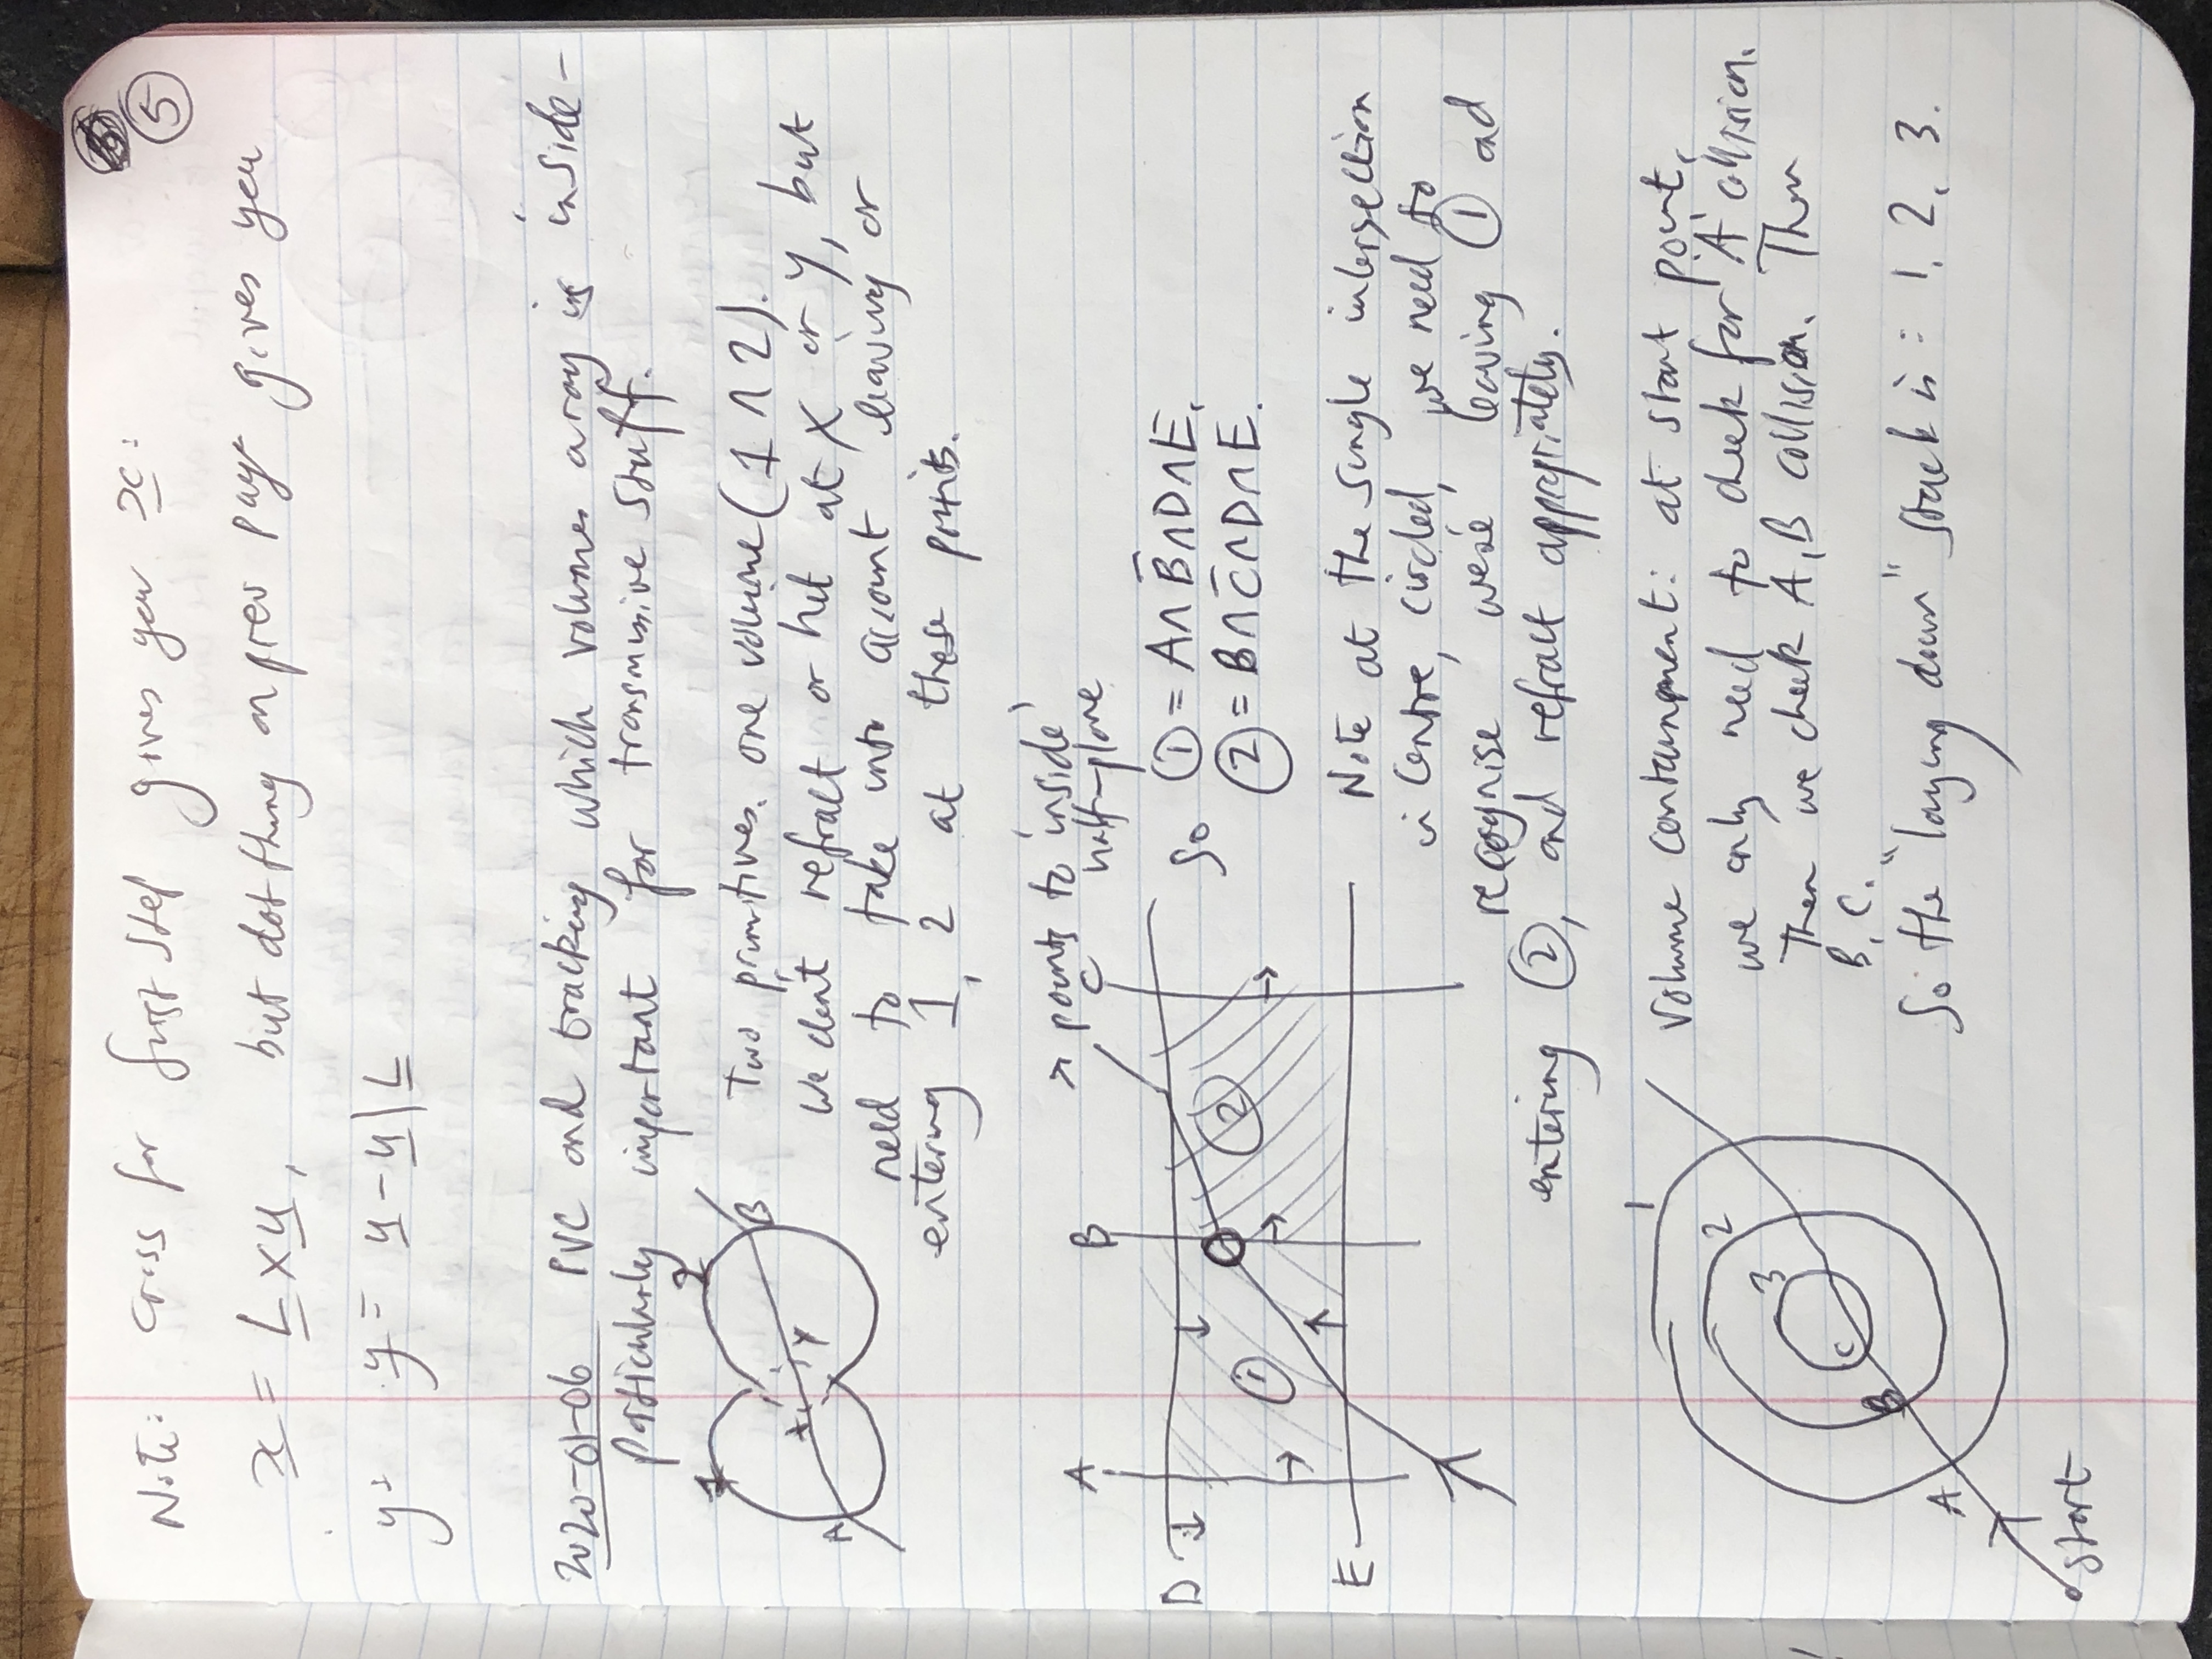 5
Note: cross for first step gives you x:
x = L × u, but dot thing on prev page gives you
y: y = u - u | L
2020-01-06 PVC and tracking which volumes a ray is inside -
particularly important for transmissive stuff.
1 2
A X Y B
Two primitives. one volume (1 ∩ 2).
We don't refract or hit at X or Y, but
need to take into account leaving or
entering 1, 2 at these points.
> points to 'inside'
half-plane
A B C
D
1 2
E
So ① = A ∩ B̅ ∩ D ∩ E,
② = B ∩ C̅ ∩ D ∩ E.
Note at the single intersection
in centre, circled, we need to
recognise we're leaving ① and
entering ②, and refract appropriately.
1
2
3
C
B
A
start
Volume containment: at start point,
we only need to check for 'A' collision.
Then we check A, B collision. Then
B, C.
So the "laying down" stack is: 1, 2, 3.